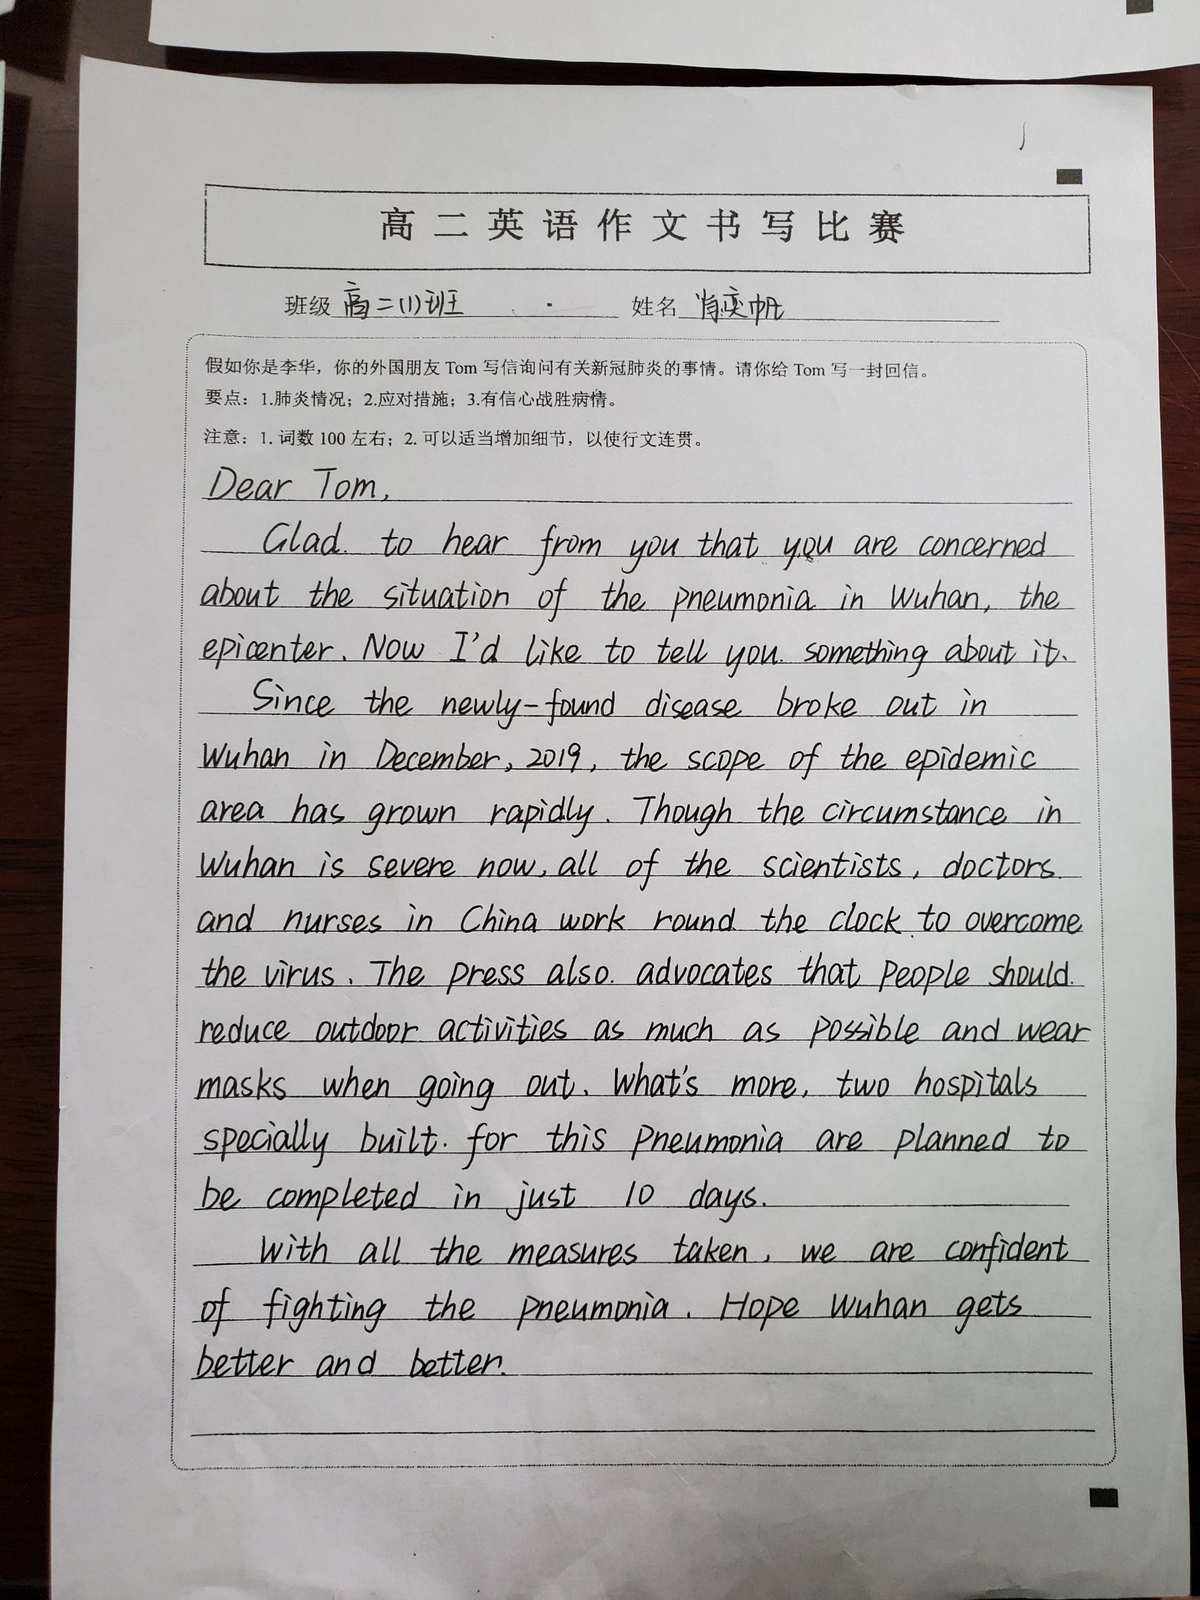 高二英语作文书写比赛
班级 高二(1)班 姓名 肖奕帆
假如你是李华，你的外国朋友 Tom 写信询问有关新冠肺炎的事情。请你给 Tom 写一封回信。
要点：1.肺炎情况；2.应对措施；3.有信心战胜病情。
注意：1. 词数 100 左右；2. 可以适当增加细节，以使行文连贯。
Dear Tom,
Glad to hear from you that you are concerned
about the situation of the pneumonia in Wuhan, the
epicenter. Now I'd like to tell you something about it.
Since the newly-found disease broke out in
Wuhan in December, 2019, the scope of the epidemic
area has grown rapidly. Though the circumstance in
Wuhan is severe now, all of the scientists, doctors
and nurses in China work round the clock to overcome
the virus. The press also advocates that people should
reduce outdoor activities as much as possible and wear
masks when going out. What's more, two hospitals
specially built for this pneumonia are planned to
be completed in just 10 days.
With all the measures taken, we are confident
of fighting the pneumonia. Hope Wuhan gets
better and better.